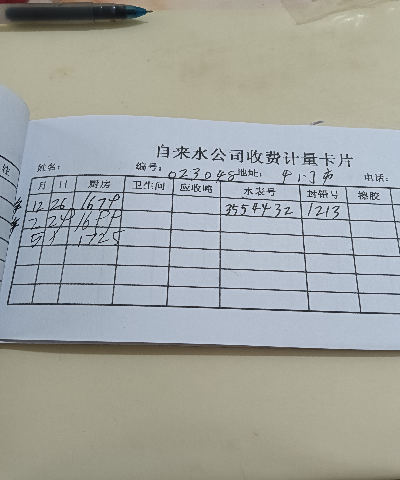 自来水公司收费计量卡片
姓名: 编号: 023048 地址: 电话:
月 日 厨房 卫生间 应收吨 水表号 封铅号 橡胶
12 26 1679 3554432 1213
2 29 1699
5 1 1725